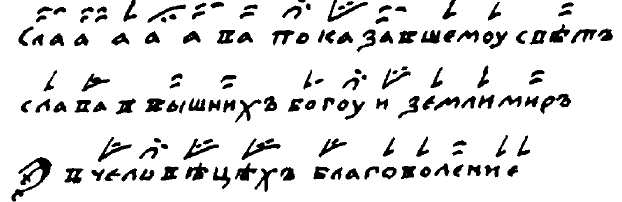 Слаа а а а ва показавшемоу свѣтъ
слава в вышнихъ богоу и земли миръ
в человѣцѣхъ благоволение